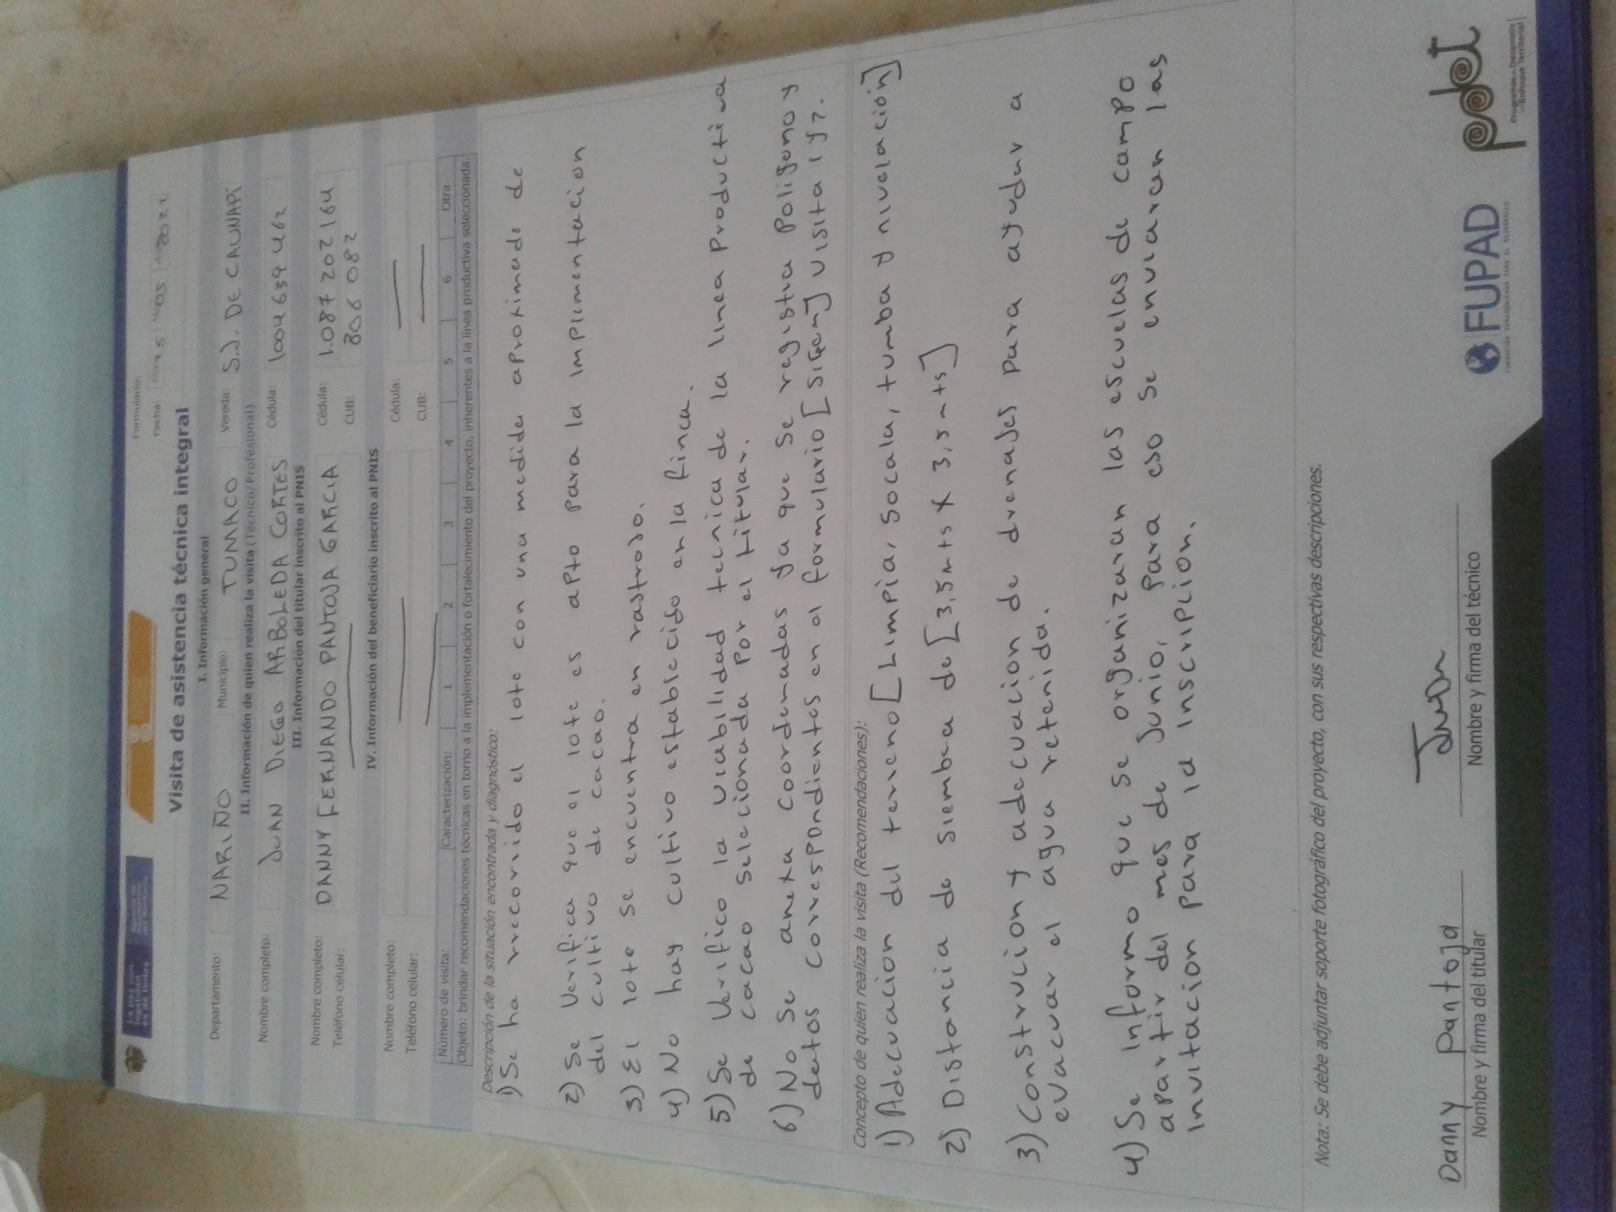 Formulario:
Fecha: 2021
Visita de asistencia técnica integral
I. Información general
Departamento: NARIÑO Municipio: TUMACO Vereda: S.J. DE CAUNAPI
II. Información de quien realiza la visita (Técnico/Profesional)
Nombre completo: JUAN DIEGO ARBOLEDA CORTES Cédula: 1004 639 462
III. Información del titular inscrito al PNIS
Nombre completo: DANNY FERNANDO PANTOJA GARCIA Cédula: 1.087 202 164
Teléfono celular: CUB: 806 082
IV. Información del beneficiario inscrito al PNIS
Nombre completo: Cédula:
Teléfono celular: CUB:
Número de visita: Caracterización: 1 2 3 4 5 6 Otra
Objeto: brindar recomendaciones técnicas en torno a la implementación o fortalecimiento del proyecto, inherentes a la línea productiva seleccionada.
Descripción de la situación encontrada y diagnóstico:
1) Se ha rrecorrido el lote con una medida aproximado de
2) Se Verifica que el lote es apto para la implementacion
del cultivo de cacao.
3) El lote se encuentra en rastrojo.
4) No hay cultivo establecido en la finca.
5) Se Verifico la viabilidad tecnica de la linea Productiva
de cacao selecionada por el titular.
6) No Se anexa coordenadas ya que se registra poligono y
datos correspondientes en el formulario [Sigem] visita 1 y 2.
Concepto de quien realiza la visita (Recomendaciones):
1) Adecuacion del terreno [Limpia, Socala, tumba y nivelación]
2) Distancia de siembra de [3,5 mts X 3,5 mts]
3) Construcion y adecuacion de drenajes para ayudar a
evacuar el agua retenida.
4) Se informo que se organizaran las escuelas de campo
apartir del mes de Junio, para eso se enviaran las
invitacion para la inscripcion.
Nota: Se debe adjuntar soporte fotográfico del proyecto, con sus respectivas descripciones.
Danny Pantoja Juan
Nombre y firma del titular Nombre y firma del técnico
FUPAD
pdet
Programas de Desarrollo
con Enfoque Territorial